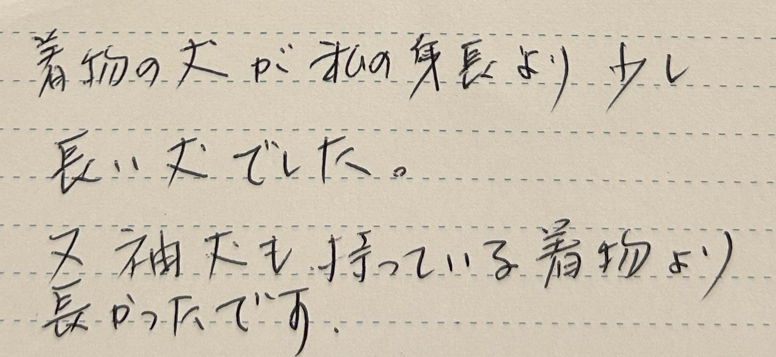 着物の丈が私の身長より少し
長い丈でした。
又袖丈も持っている着物より
長かったです.